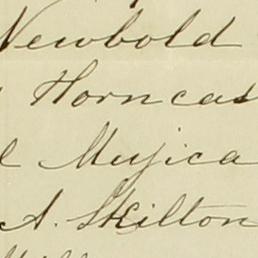 Newbold
Horncas
l Mujica
A. Skilton